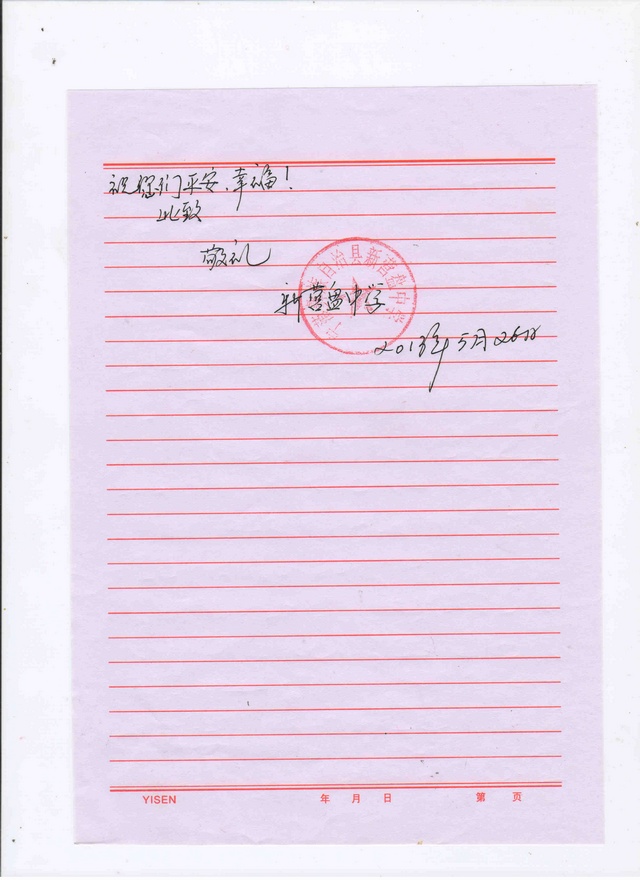 祝您们平安、幸福！
此致
敬礼
自治县新营盘中学
新营盘中学
2013年5月26日
YISEN 年 月 日 第 页